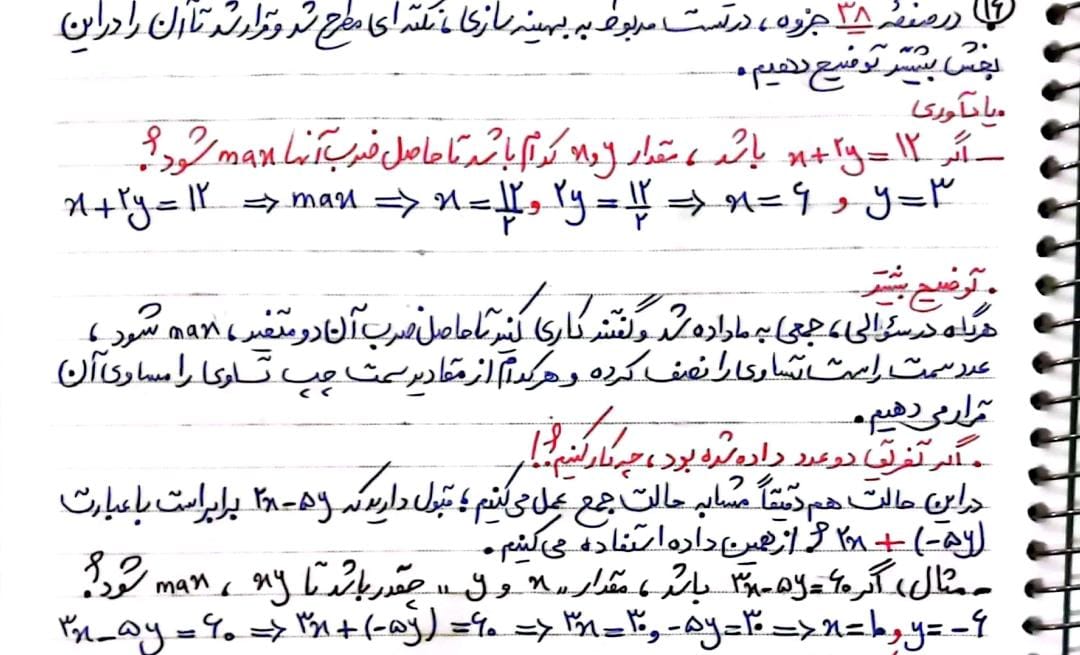 ۱۶) در صفحه ۳۸ جزوه، در تست مربوط به بهینه سازی، نکته ای مطرح شد و قرار شد تا آن را در این
بخش بیشتر توضیح دهیم.
.یادآوری
ـ اگر x+۲y=۱۲ باشد، مقدار x و y کدام باشد تا حاصل ضرب آنها max شود؟
x+۲y=۱۲ ⇒ max ⇒ x=۱۲/۲ و ۲y=۱۲/۲ ⇒ x=۶ و y=۳
. توضیح بیشتر
هرگاه در سؤالی، جمعی به ما داده شد و گفتند کاری کنید تا حاصل ضرب آن دو متغیر، max شود،
عدد سمت راست تساوی را نصف کرده و هر کدام از مقادیر سمت چپ تساوی را مساوی آن
قرار می دهیم.
. اگر تفریق دو عدد داده شده بود، چه کار کنیم؟!
در این حالت هم دقیقاً مشابه حالت جمع عمل می کنیم؛ قبول دارید که ۲x-۵y برابر است با عبارت
۲x+(-۵y)؟ از همین داده استفاده می کنیم.
ـ مثال، اگر ۳x-۵y=۶۰ باشد، مقدار "x و y" چقدر باشد تا xy، max شود؟
۳x-۵y=۶۰ ⇒ ۳x+(-۵y)=۶۰ ⇒ ۳x=۳۰ و -۵y=۳۰ ⇒ x=۱۰ و y=-۶